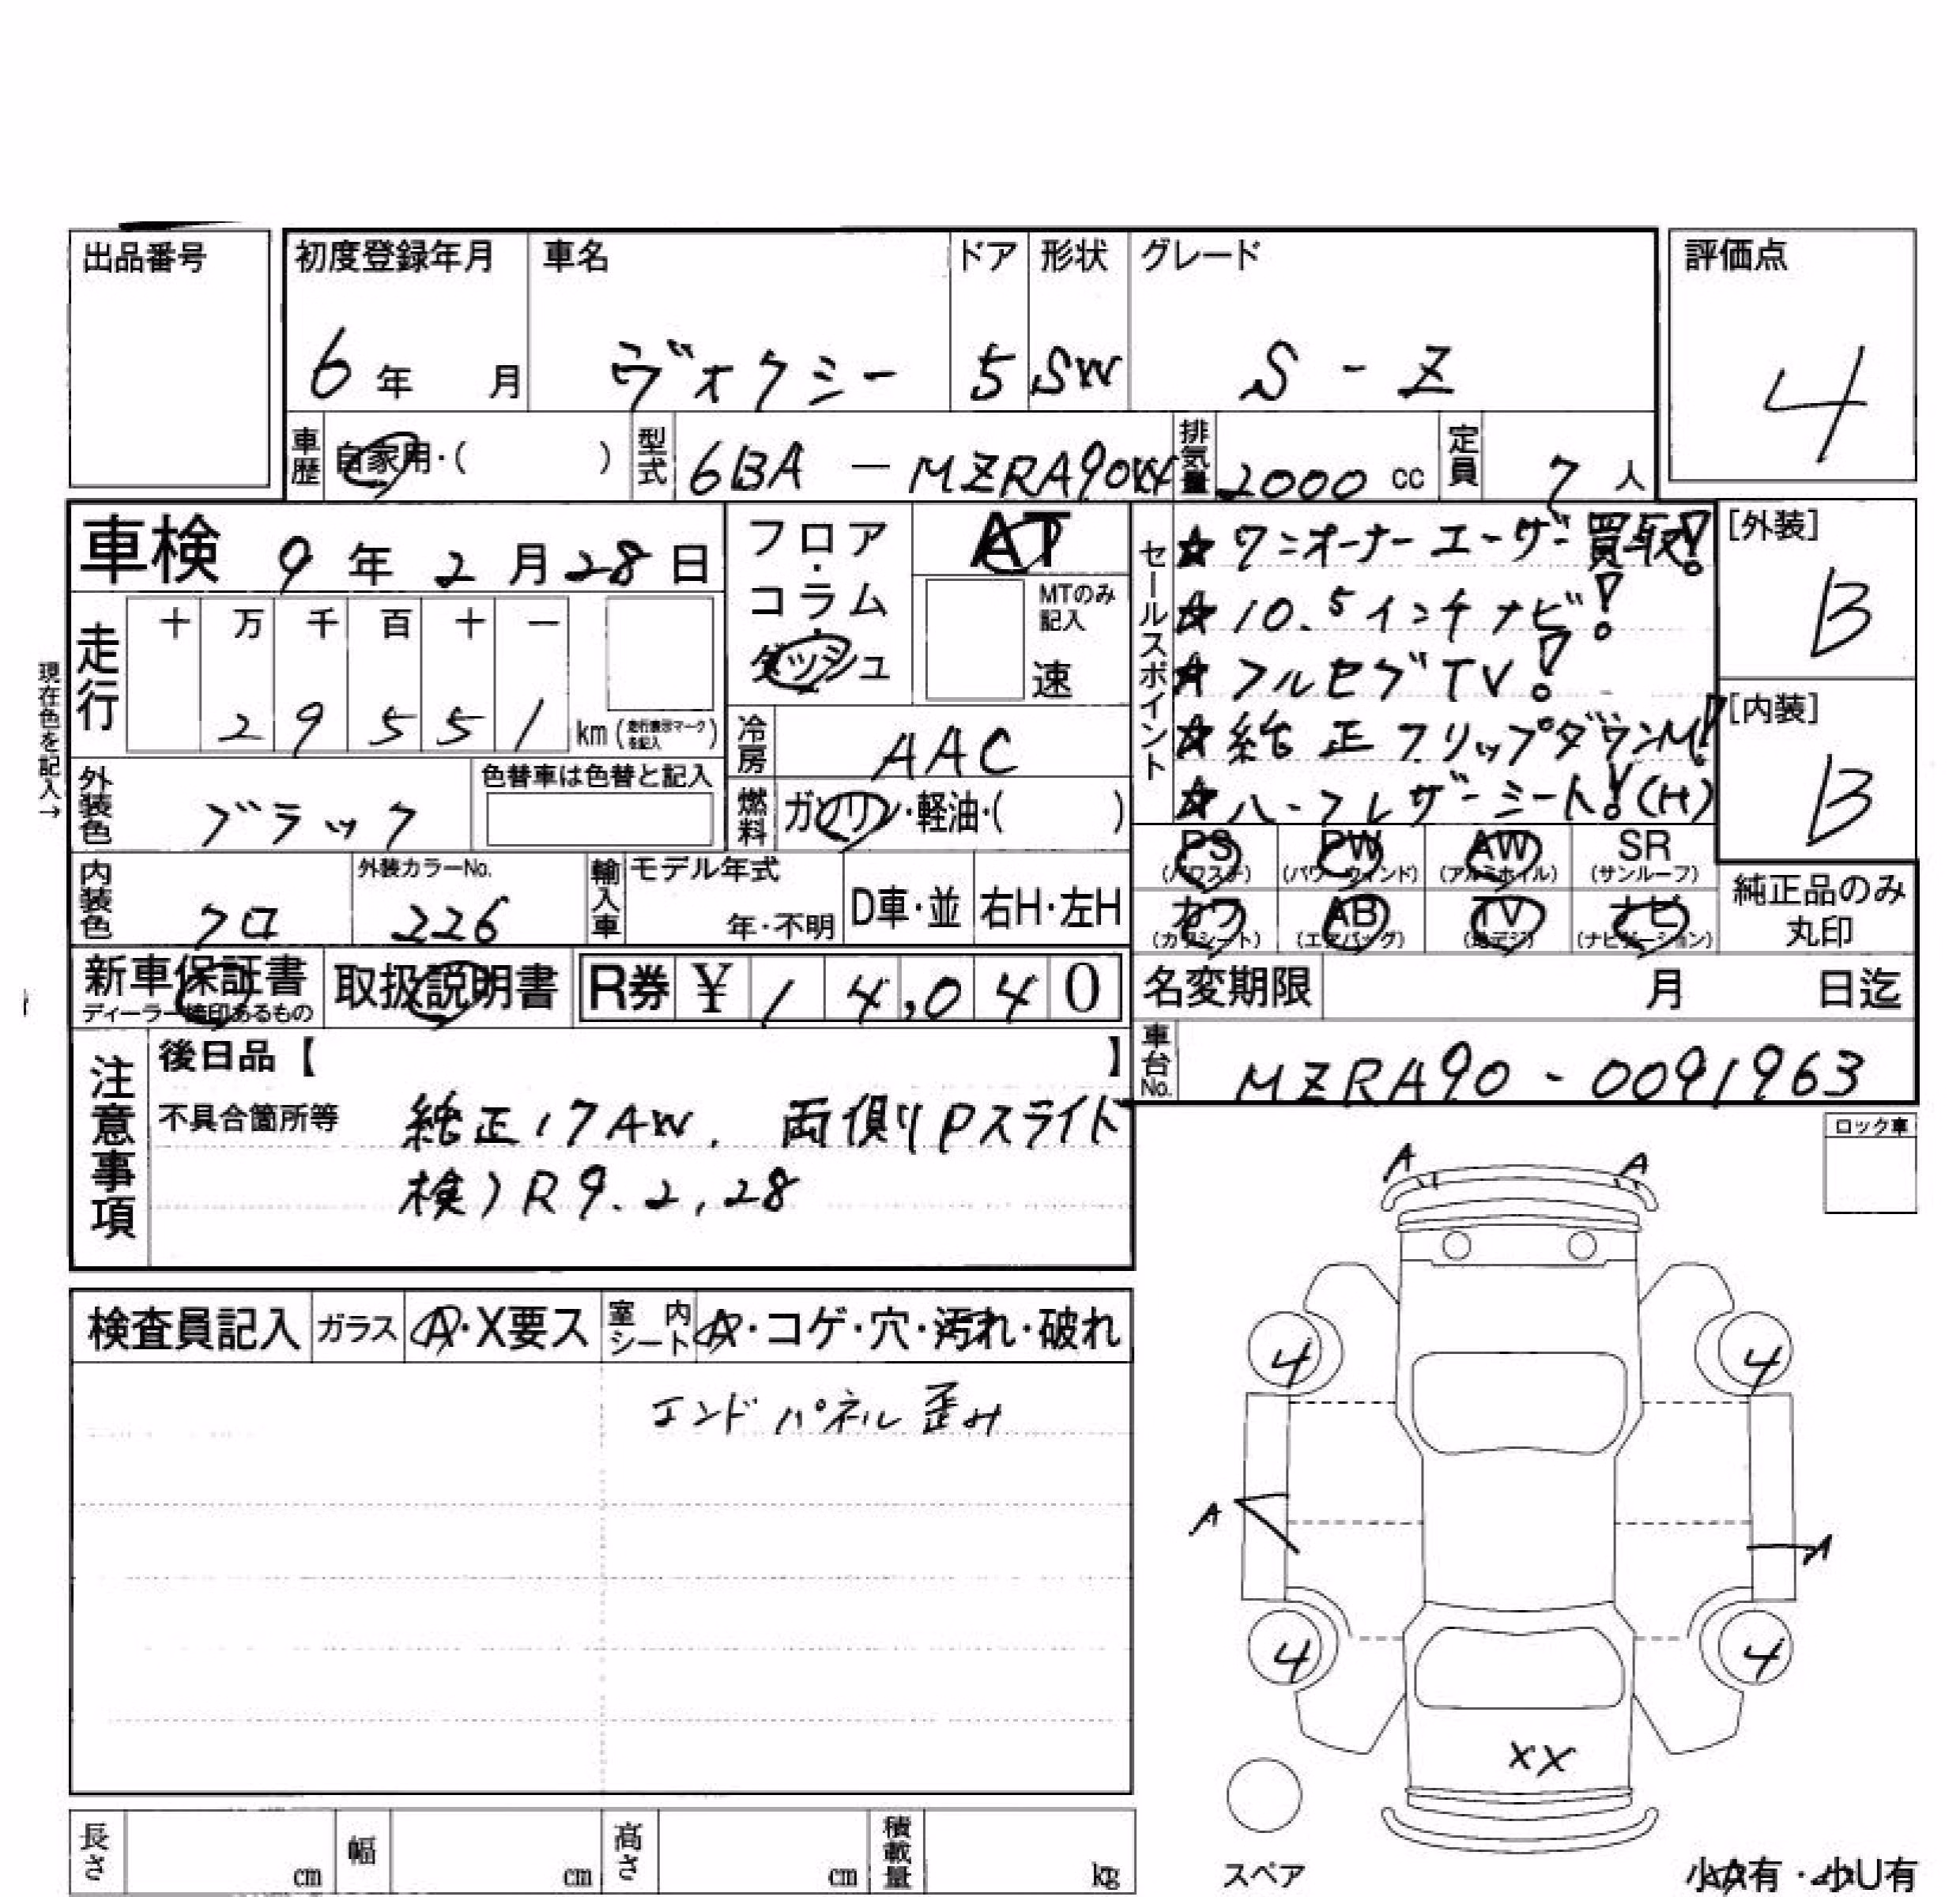 出品番号
初度登録年月 車名 ドア 形状 グレード 評価点
6年 月 ヴォクシー 5 SW S-Z 4
車歴 自家用・( ) 型式 6BA-MZRA90W 排気量 2000cc 定員 7人
車検 9年2月28日
フロア・コラム・ダッシュ AT
MTのみ記入 速
セールスポイント
☆ワンオーナーユーザー買取!
☆10.5インチナビ!
☆フルセグTV!
☆純正フリップダウンM!
☆ハーフレザーシート!(H)
[外装] B
[内装] B
現在色を記入→
走行 十 万 千 百 十 一
2 9 5 5 1 km(走行表示マークを記入)
冷房 AAC
外装色 ブラック 色替車は色替と記入
燃料 ガソリン・軽油・( )
PS (パワステ) PW (パワーウィンド) AW (アルミホイル) SR (サンルーフ)
カワ (カワシート) AB (エアバッグ) TV (地デジ) ナビ (ナビゲーション)
純正品のみ丸印
内装色 クロ 外装カラーNo. 226 輸入車 モデル年式 年・不明 D車・並 右H・左H
新車保証書 取扱説明書 R券 ¥ 1 4,0 4 0
名変期限 月 日迄
車台No. MZRA90-0091963
注意事項
後日品【 】
不具合箇所等 純正17AW. 両側Pスライド
検)R9.2.28
ロック車
A A
検査員記入 ガラス A・X要ス 室内シート A・コゲ・穴・汚れ・破れ
エンドパネル歪み
4 4
A A
4 4
XX
スペア
小A有・小U有
長さ cm 幅 cm 高さ cm 積載量 kg